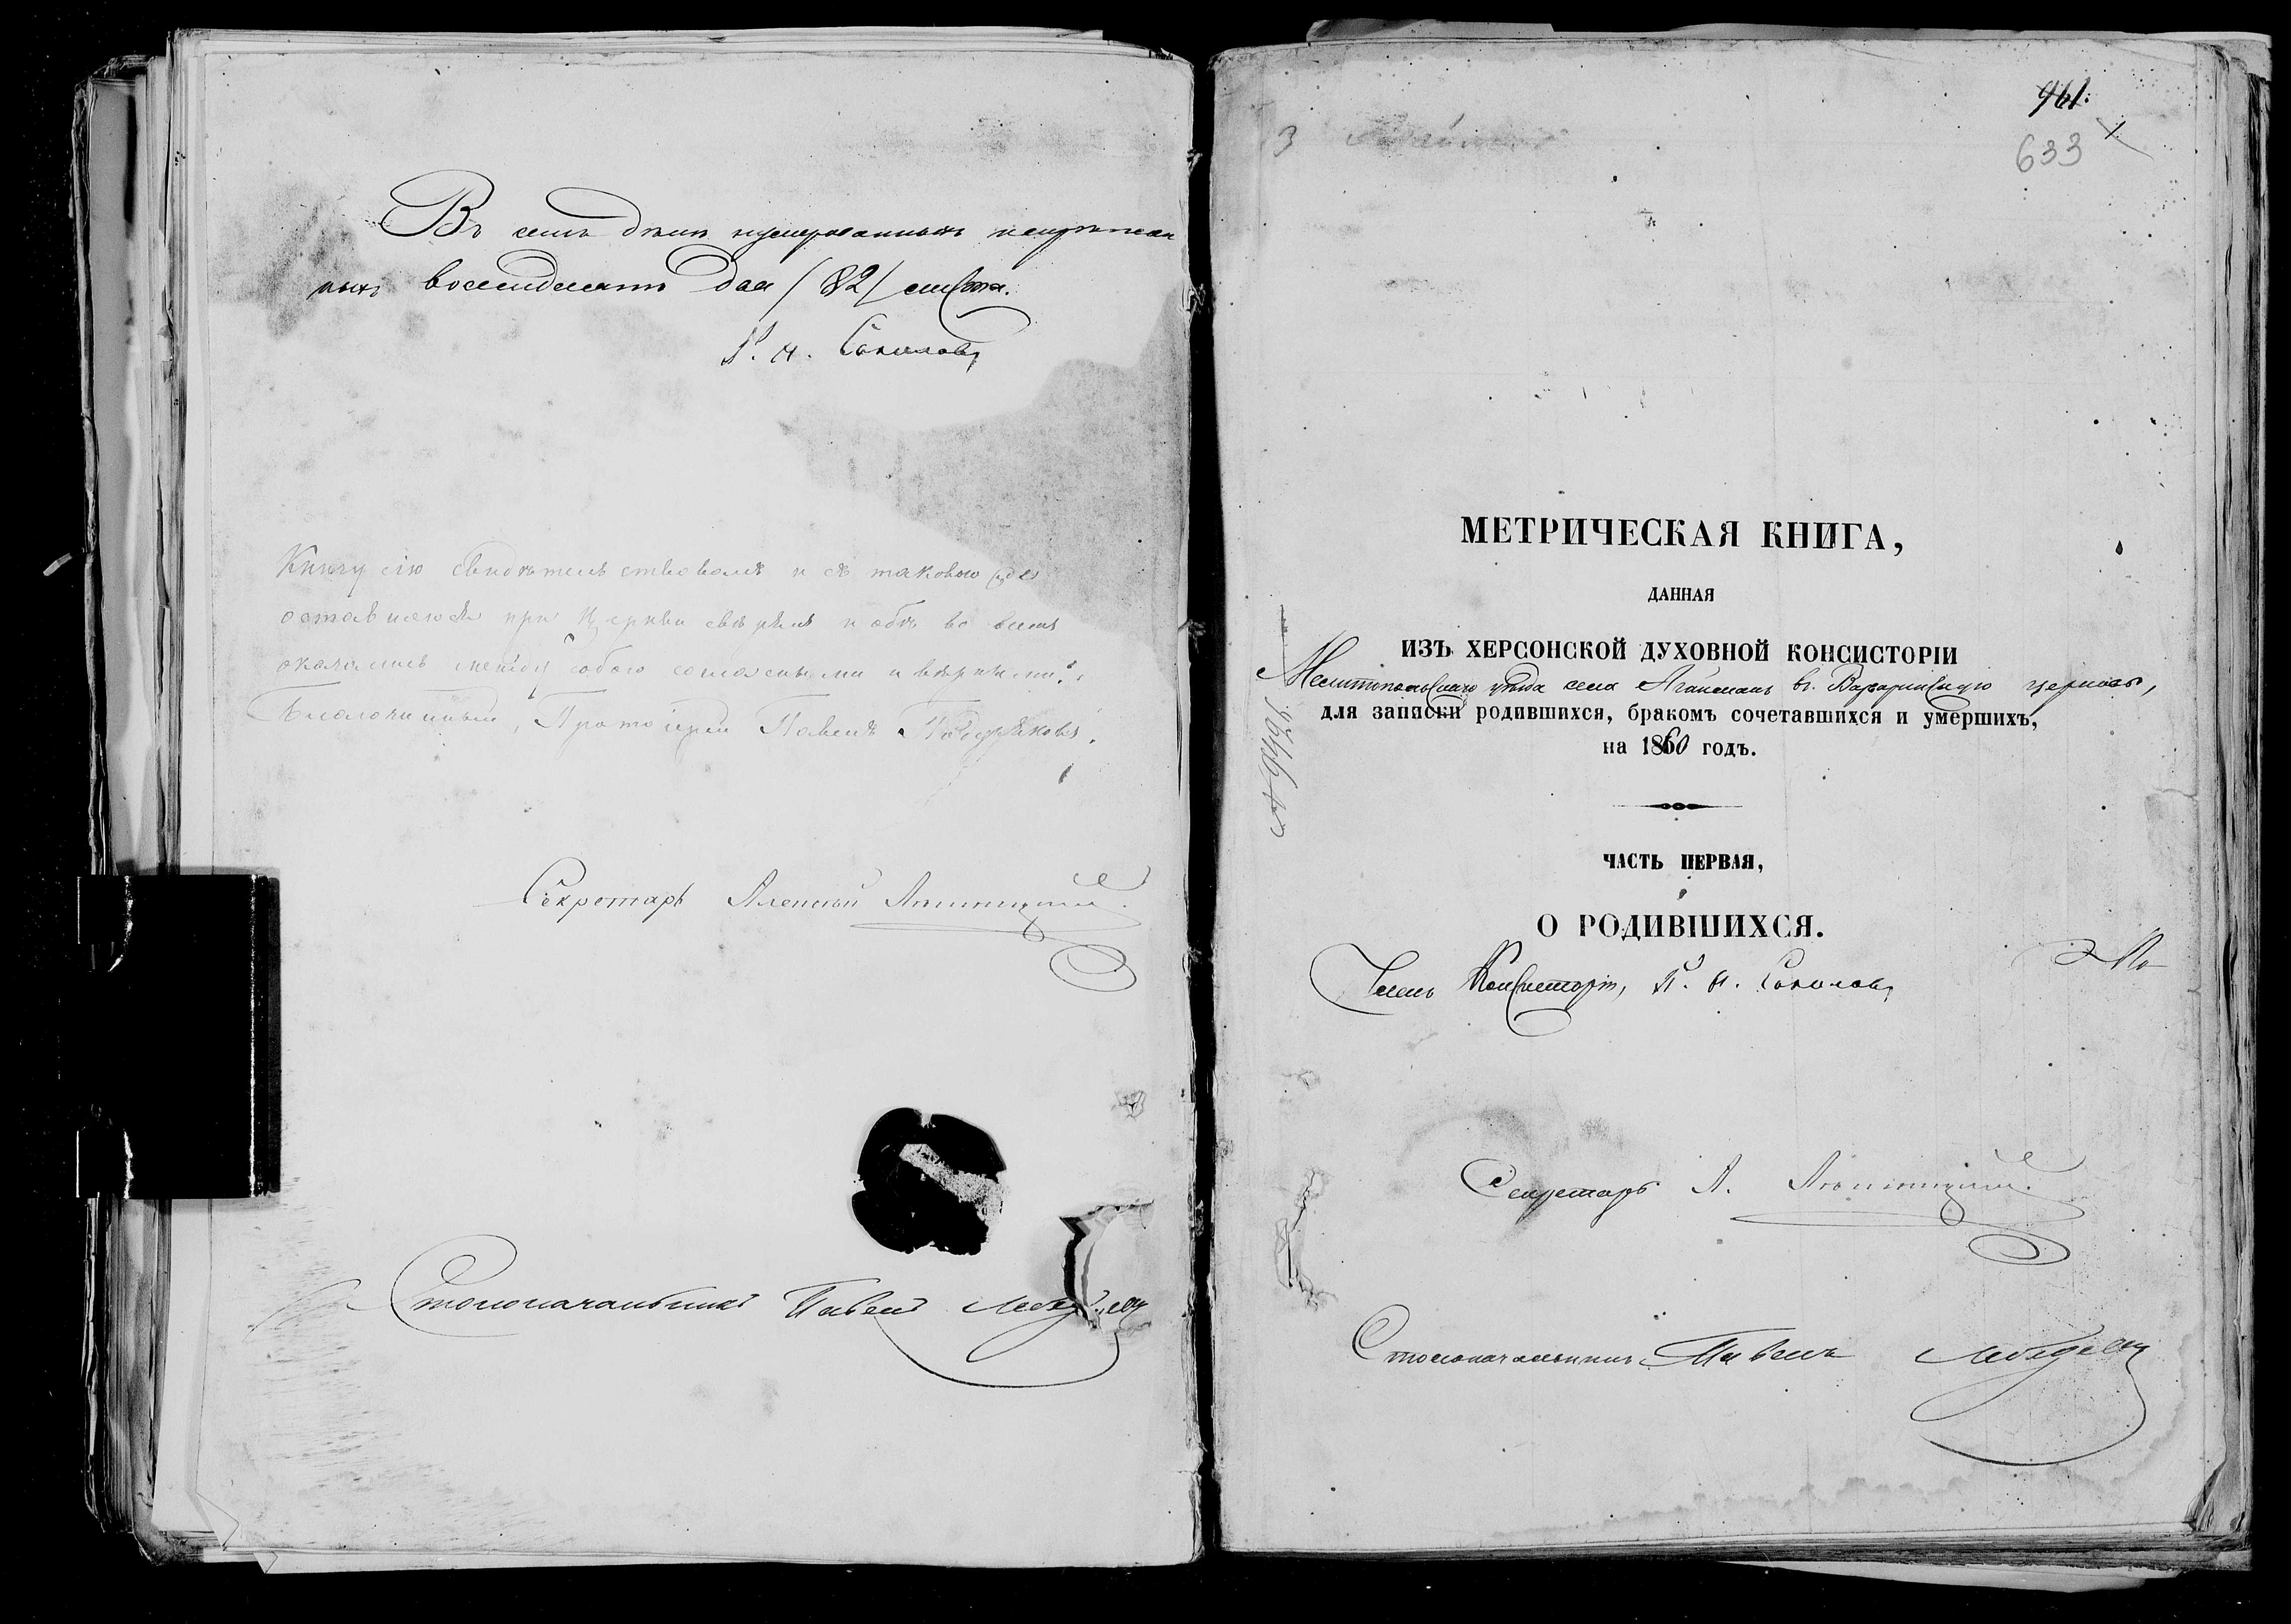 Въ семъ дѣлѣ нумерованныхъ
ныхъ восемдесятъ два (82) листа.
П. И. Соколовъ
Книгу сію свидѣтельствовалъ и съ таковою
оставшеюся при церкви свѣрялъ и обѣ во всемъ
оказались между собою согласными и вѣрными.
Благочинный, Протоіерей Павелъ
Секретарь Алексій
Столоначальникъ Павелъ
961.
633
3
МЕТРИЧЕСКАЯ КНИГА,
ДАННАЯ
ИЗЪ ХЕРСОНСКОЙ ДУХОВНОЙ КОНСИСТОРІИ
Мелитопольскаго уѣзда села Агайманъ въ Варваринскую церковь,
для записки родившихся, бракомъ сочетавшихся и умершихъ,
на 1860 годъ.
ЧАСТЬ ПЕРВАЯ,
О РОДИВШИХСЯ.
Членъ Консисторіи, П. И. Соколовъ
Секретарь А.
Столоначальникъ Павелъ Лебедевъ